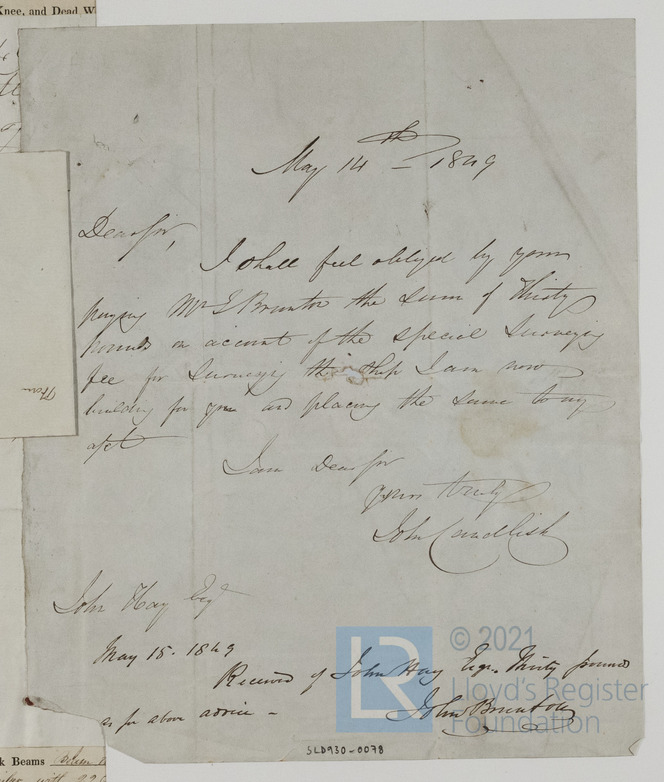 Knee, and Dead W
May 14th - 1849
Dear Sir,
I shall feel obliged by your
paying Mr J Brunton the sum of Thirty
pounds on account of the special Surveying
fee for Surveying the Ship I am now
building for you and placing the same to my
a/ct
I am Dear Sir
yours truly
John Candlish
John Hay Esqr
May 15. 1849
Received of John Hay Esqr. Thirty pounds
as per above advice -
John Brunton
SLD930-0078
© 2021
LR
Lloyd's Register
Foundation
k Beams